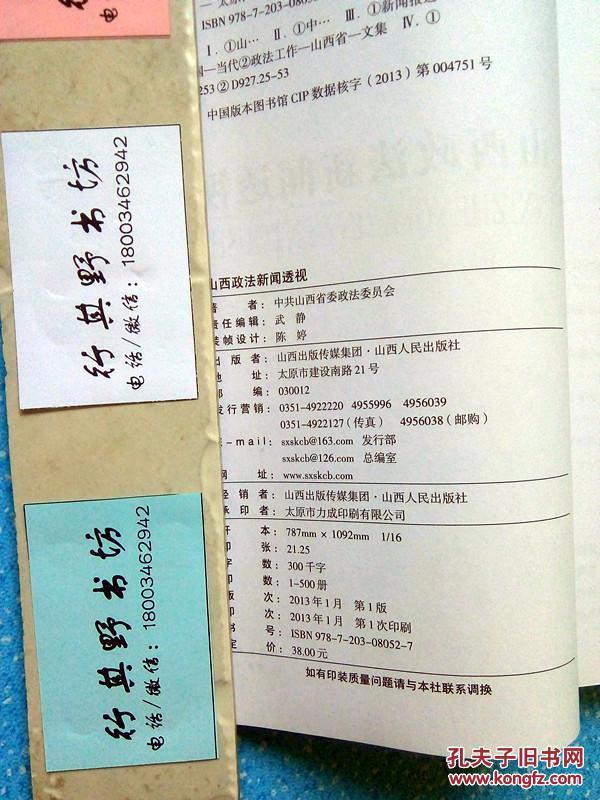 — 太原
ISBN 978-7-203-08
Ⅰ.①山… Ⅱ.①中… Ⅲ.①新闻报道
国—当代②政法工作—山西省—文集 Ⅳ.①
253②D927.25-53
中国版本图书馆CIP数据核字(2013)第004751号
山西政法新闻透视
著 者：中共山西省委政法委员会
责任编辑：武 静
装帧设计：陈 婷
出 版 者：山西出版传媒集团·山西人民出版社
地 址：太原市建设南路21号
邮 编：030012
发行营销：0351-4922220 4955996 4956039
0351-4922127(传真) 4956038(邮购)
E-mail：sxskcb@163.com 发行部
sxskcb@126.com 总编室
网 址：www.sxskcb.com
经 销 者：山西出版传媒集团·山西人民出版社
承 印 者：太原市力成印刷有限公司
开 本：787mm×1092mm 1/16
印 张：21.25
字 数：300千字
印 数：1-500册
版 次：2013年1月 第1版
印 次：2013年1月 第1次印刷
书 号：ISBN 978-7-203-08052-7
定 价：38.00元
如有印装质量问题请与本社联系调换
电
行其野书坊
电话/微信：18003462942
行其野书坊
电话/微信：18003462942
孔夫子旧书网
www.kongfz.com